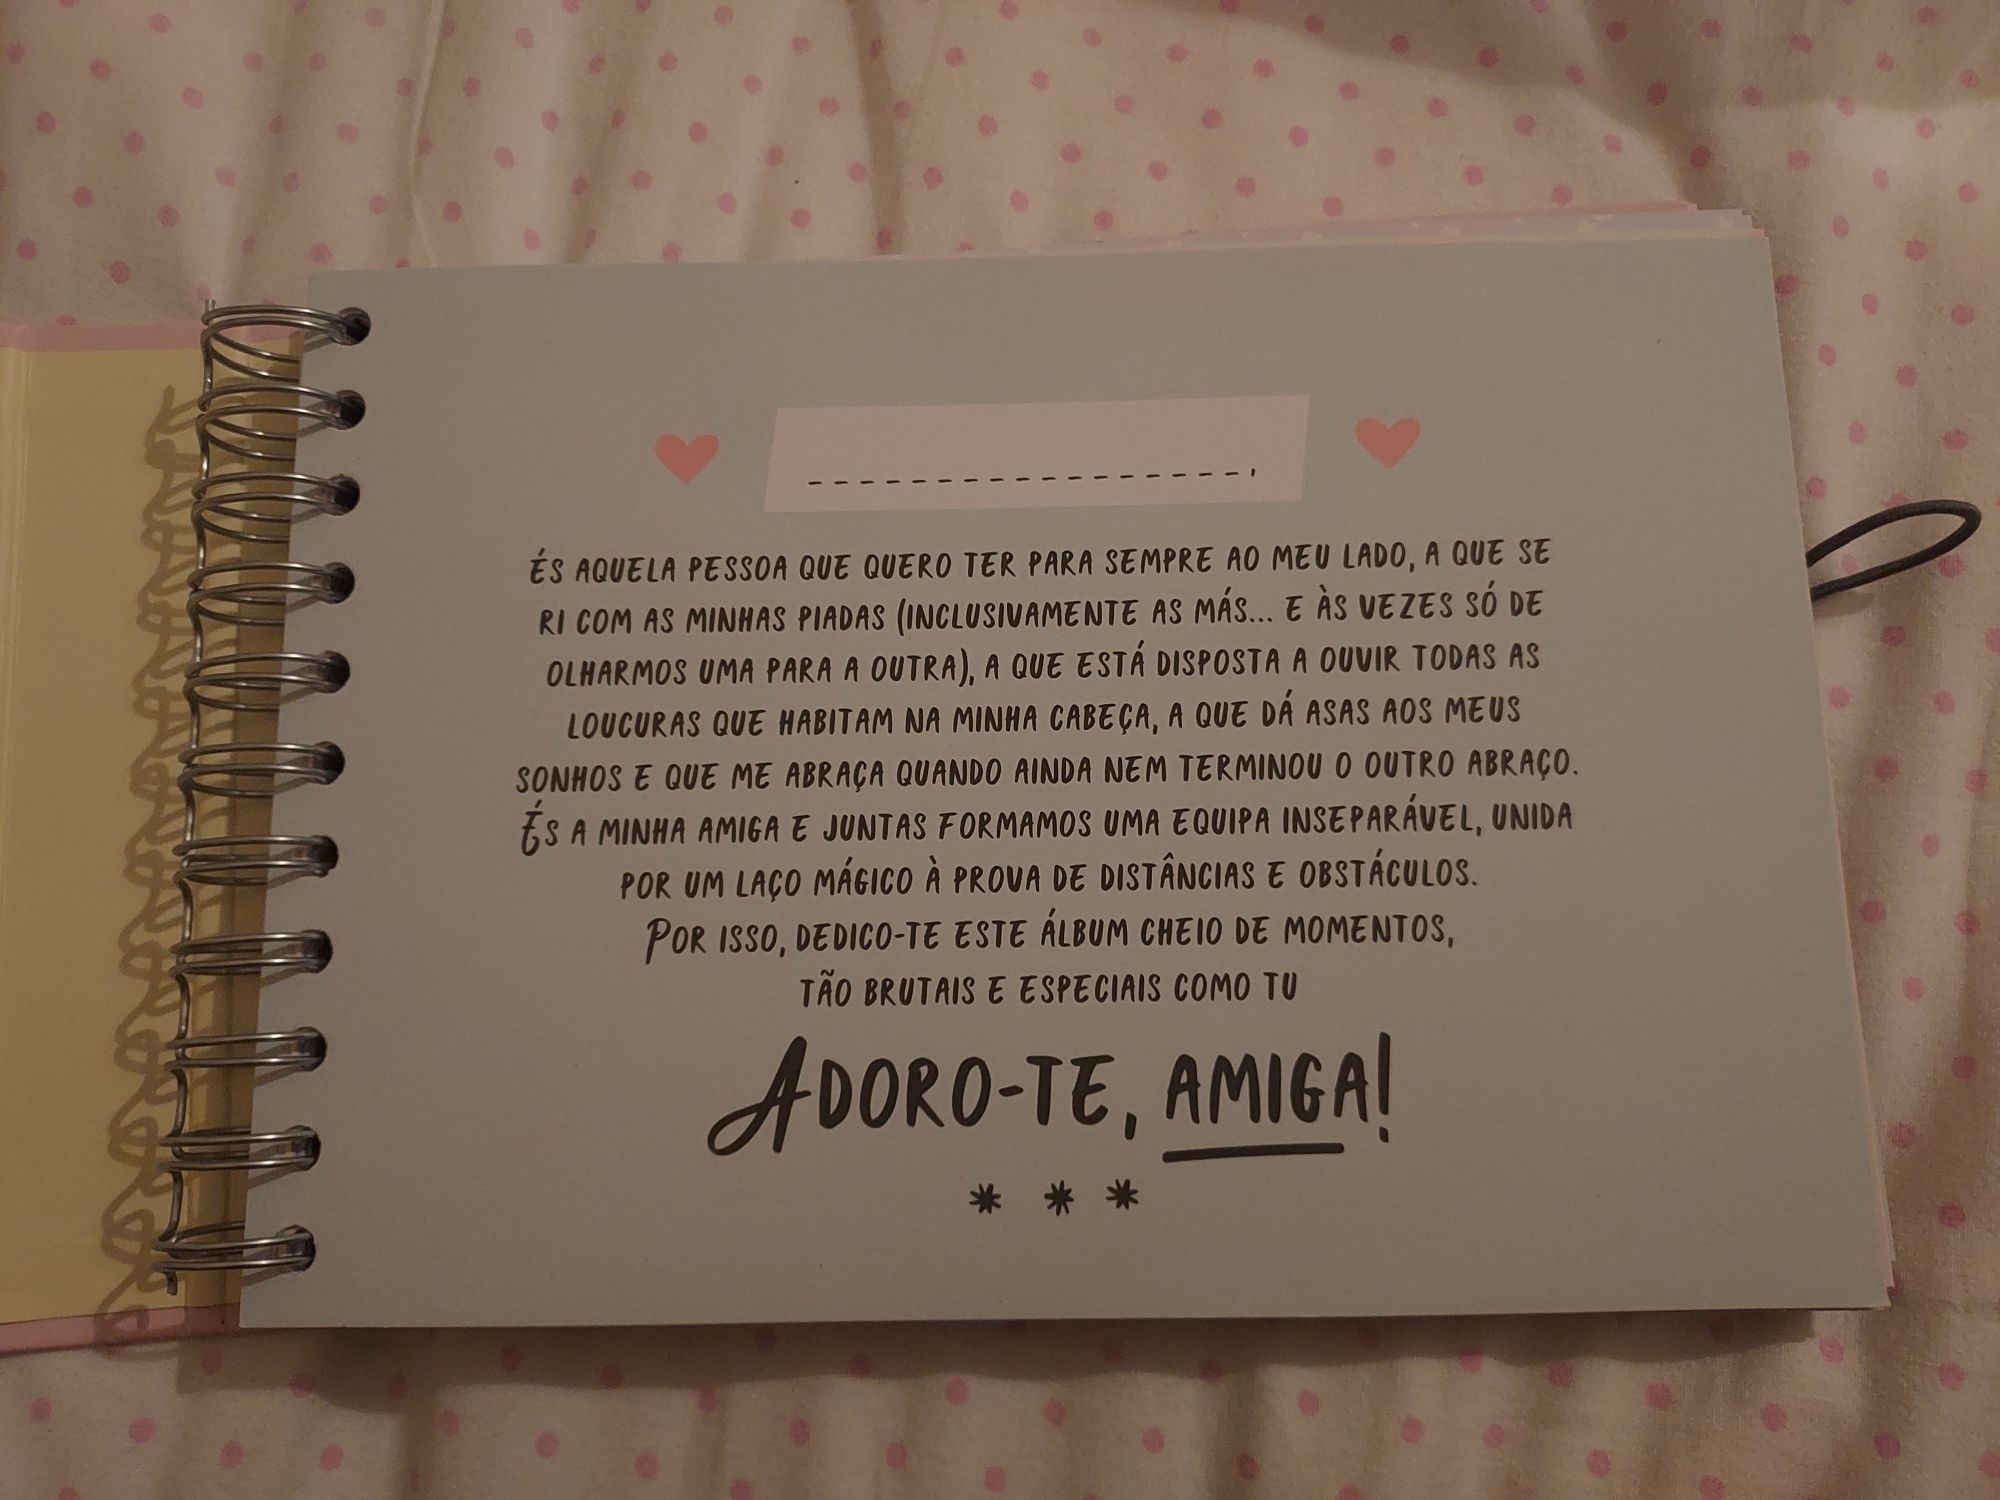 _ _ _ _ _ _ _ _ _ _ _ _ _ _ _ _ _ _,
És aquela pessoa que quero ter para sempre ao meu lado, a que se
ri com as minhas piadas (inclusivamente as más... e às vezes só de
olharmos uma para a outra), a que está disposta a ouvir todas as
loucuras que habitam na minha cabeça, a que dá asas aos meus
sonhos e que me abraça quando ainda nem terminou o outro abraço.
És a minha amiga e juntas formamos uma equipa inseparável, unida
por um laço mágico à prova de distâncias e obstáculos.
Por isso, dedico-te este álbum cheio de momentos,
tão brutais e especiais como tu
Adoro-te, amiga!
* * *